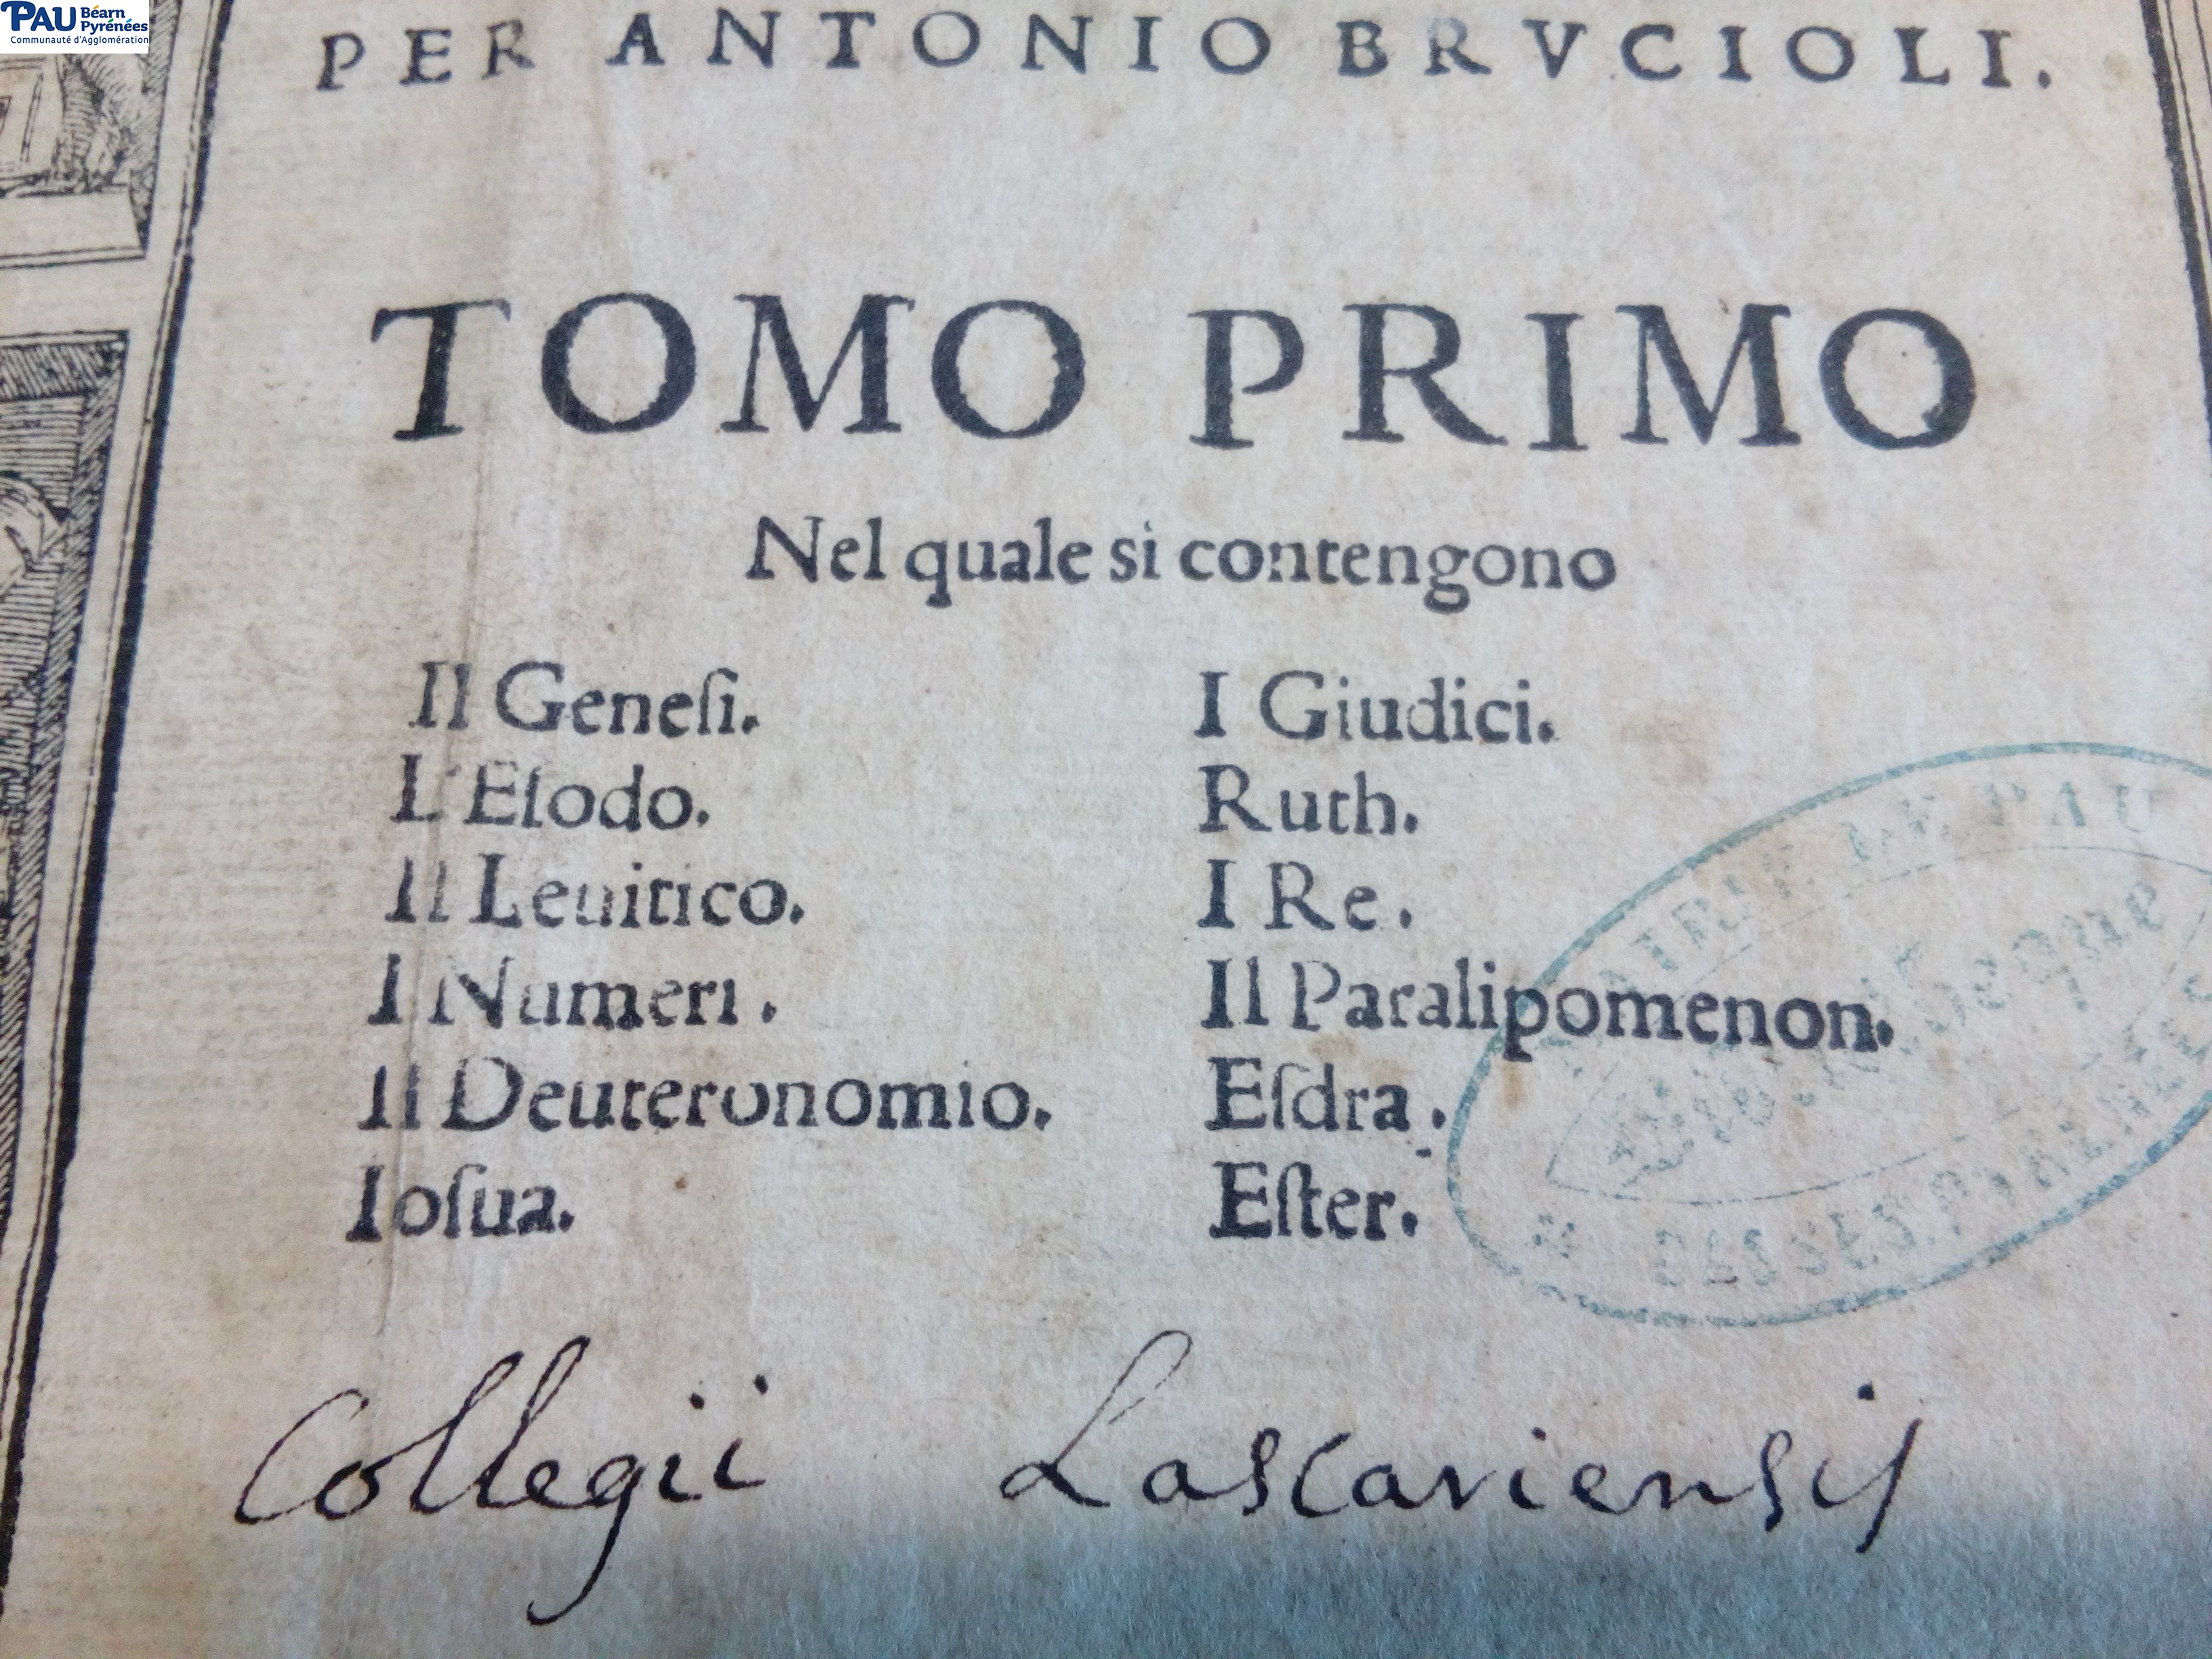 PAU Béarn
Pyrénées
Communauté d'Agglomération
PER ANTONIO BRVCIOLI.
TOMO PRIMO
Nel quale si contengono
Il Geneſi.
L'Eſodo.
Il Leuitico.
I Numeri.
Il Deuteronomio.
Ioſua.
I Giudici.
Ruth.
I Re.
Il Paralipomenon.
Eſdra.
Eſter.
PAU
Collegii Lascariensis